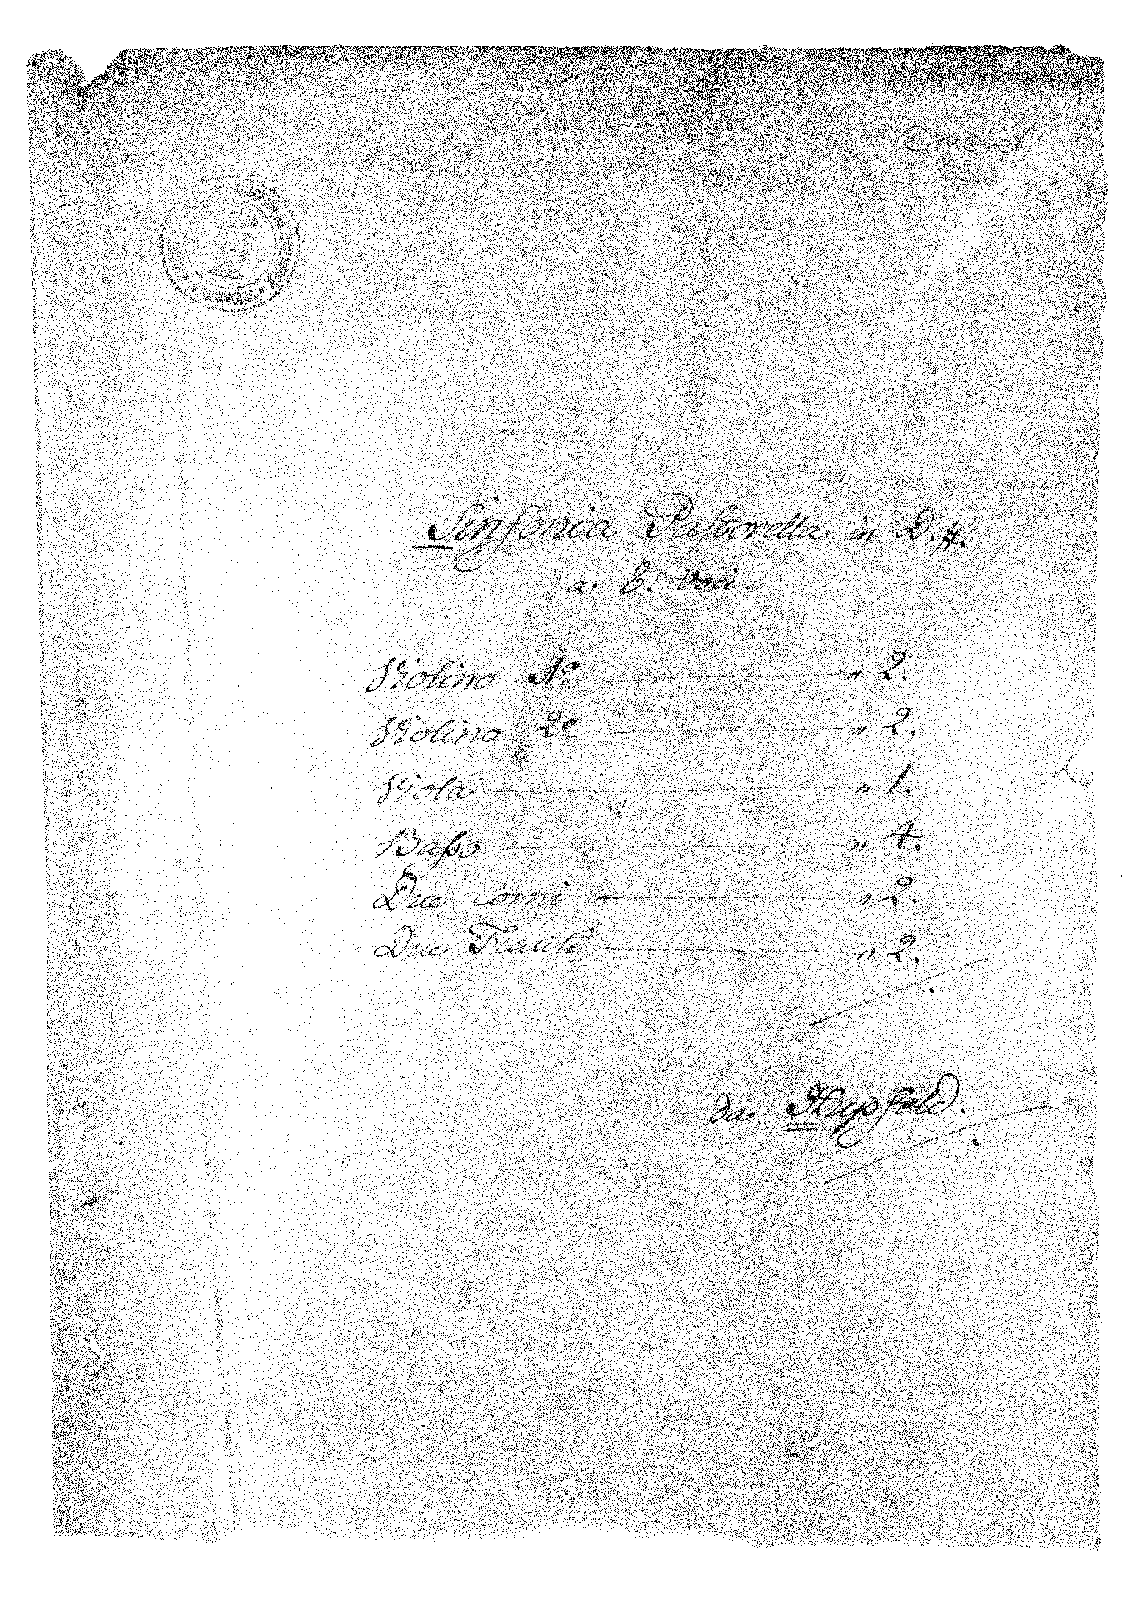 Sinfonia Pastorella in D.#.
a. 8. Voci
Violino 1o " 2.
Violino 2o " 2.
Viola " 1.
Basso " 4.
Due corni " 2.
Due Flauti " 2.
Hupfeld.